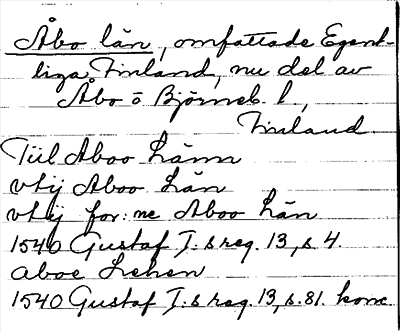 Åbo län, omfattade Egent-
liga Finland, nu del av
Åbo o Björneb. l,
Finland
Till Aboo Länn
vtij Aboo Län
vtij for:ne Aboo Län
1540 Gustaf I:s reg. 13, s 4.
Aboe Lehen
1540 Gustaf I:s reg. 13, s. 81. konc